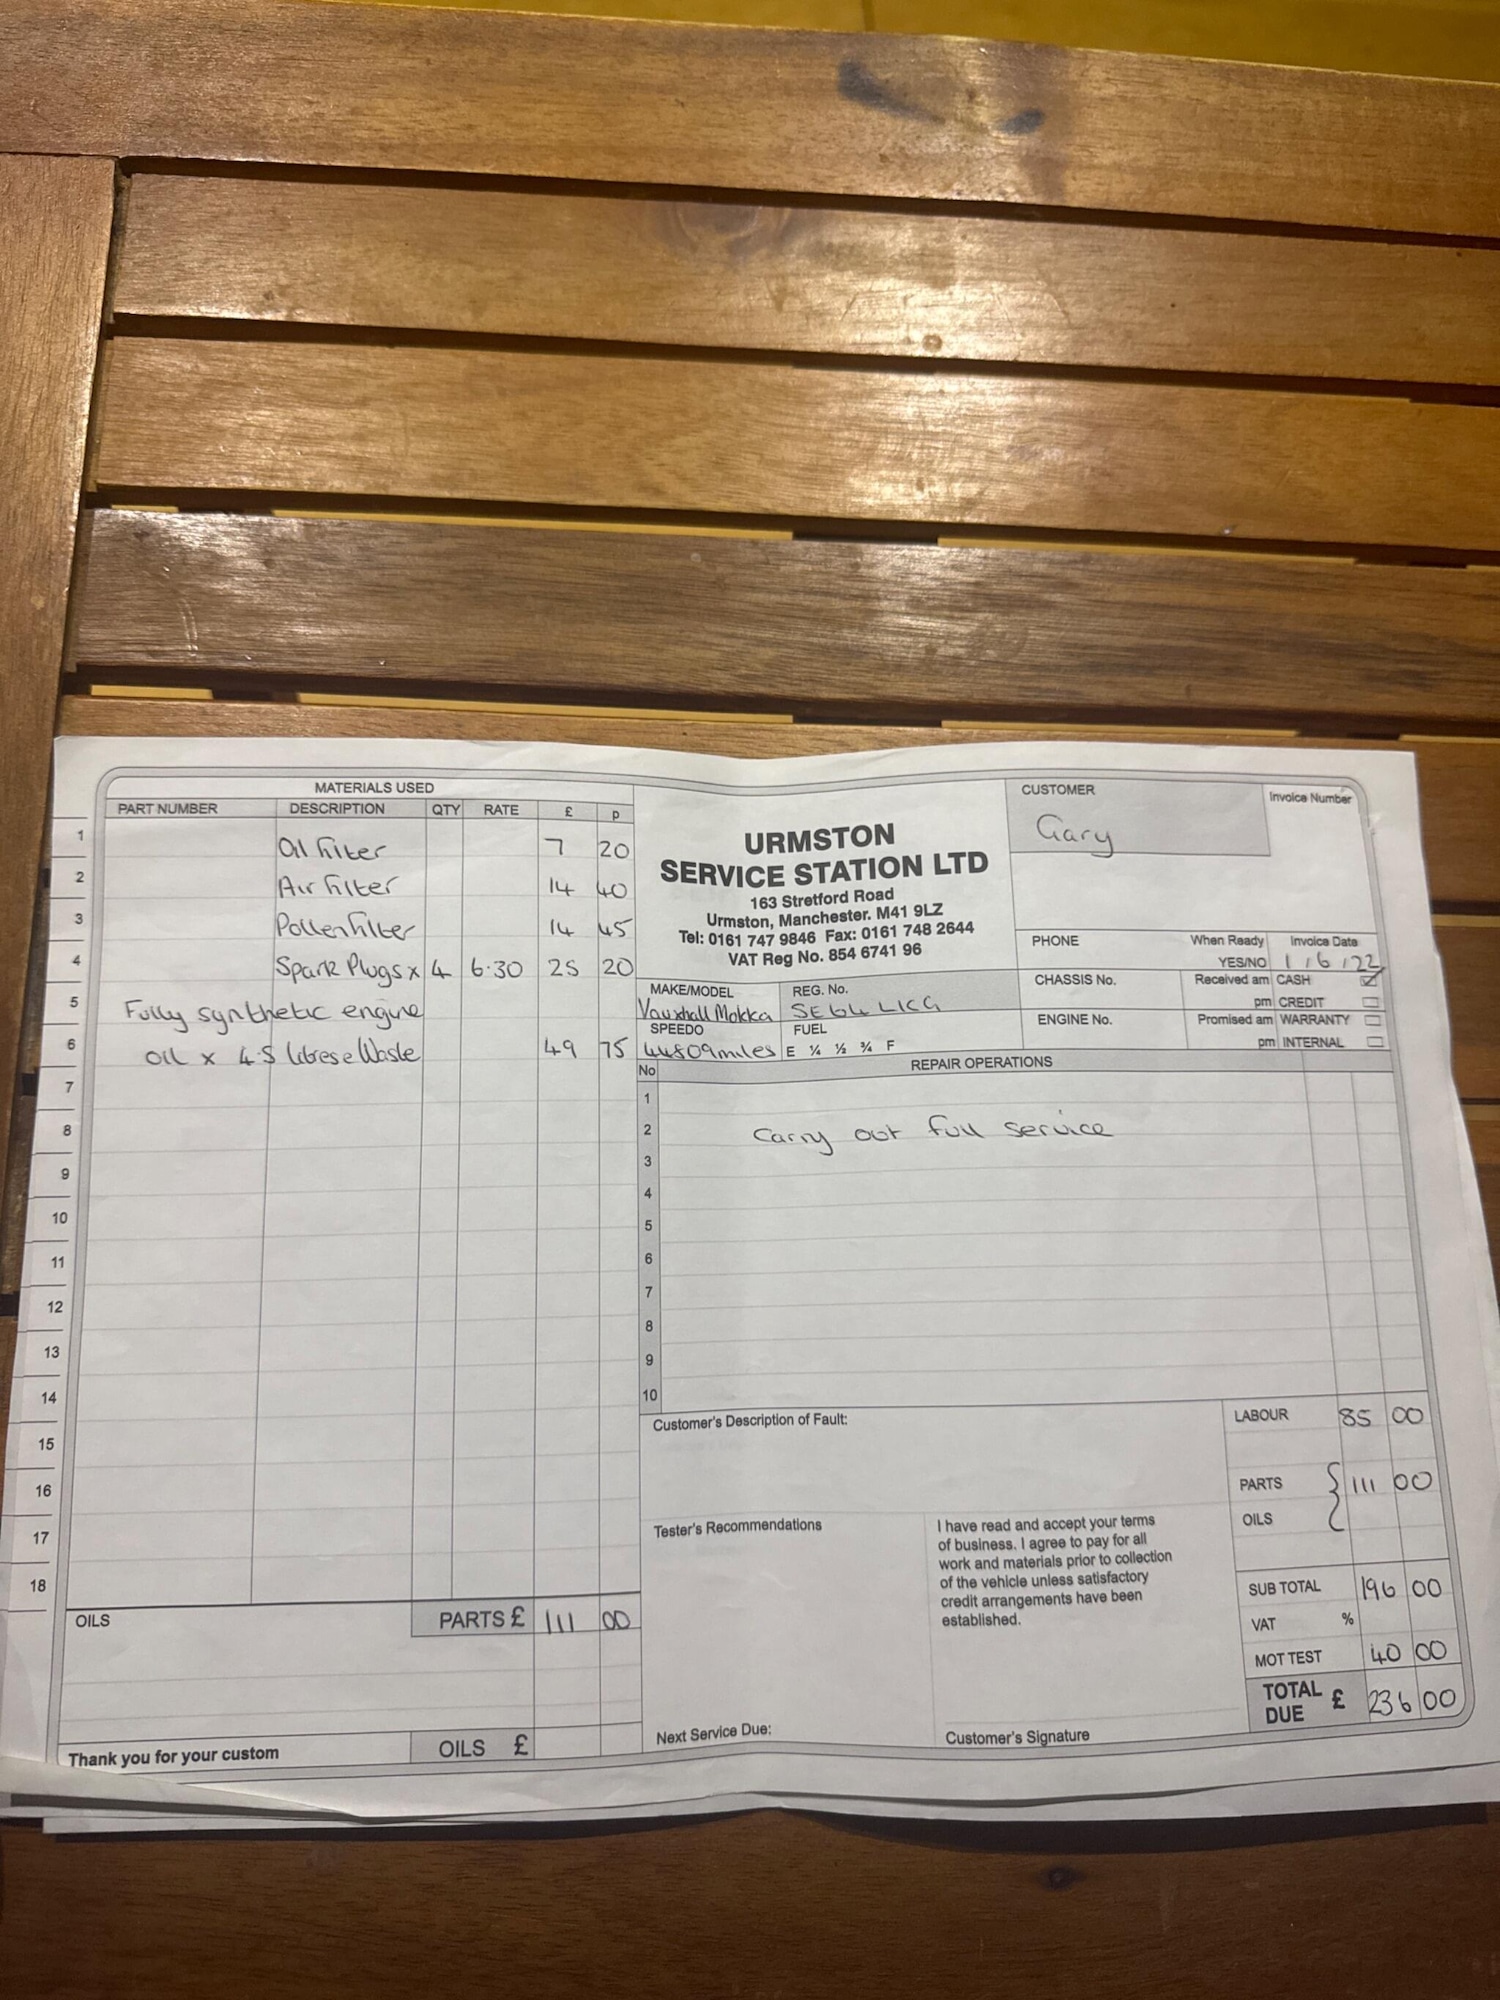 MATERIALS USED
PART NUMBER DESCRIPTION QTY RATE £ p
1 Oil Filter 7 20
2 Air Filter 14 40
3 Pollen Filter 14 45
4 Spark Plugs x 4 6.30 25 20
5 Fully synthetic engine
6 Oil x 4.5 litres e Waste 49 75
7
8
9
10
11
12
13
14
15
16
17
18
OILS PARTS £ 111 00
OILS £
Thank you for your custom
URMSTON
SERVICE STATION LTD
163 Stretford Road
Urmston, Manchester. M41 9LZ
Tel: 0161 747 9846 Fax: 0161 748 2644
VAT Reg No. 854 6741 96
CUSTOMER Invoice Number
Gary
PHONE When Ready Invoice Date
YES/NO 1 / 6 / 22
MAKE/MODEL REG. No. CHASSIS No. Received am CASH
Vauxhall Mokka pm CREDIT
SPEEDO FUEL ENGINE No. Promised am WARRANTY
44809miles E ¼ ½ ¾ F pm INTERNAL
No REPAIR OPERATIONS
1
2 Carry out full service
3
4
5
6
7
8
9
10
Customer's Description of Fault:
LABOUR 85 00
PARTS 111 00
OILS
Tester's Recommendations
I have read and accept your terms
of business. I agree to pay for all
work and materials prior to collection
of the vehicle unless satisfactory
credit arrangements have been
established.
SUB TOTAL 196 00
VAT %
MOT TEST 40 00
TOTAL DUE £ 236 00
Next Service Due:
Customer's Signature